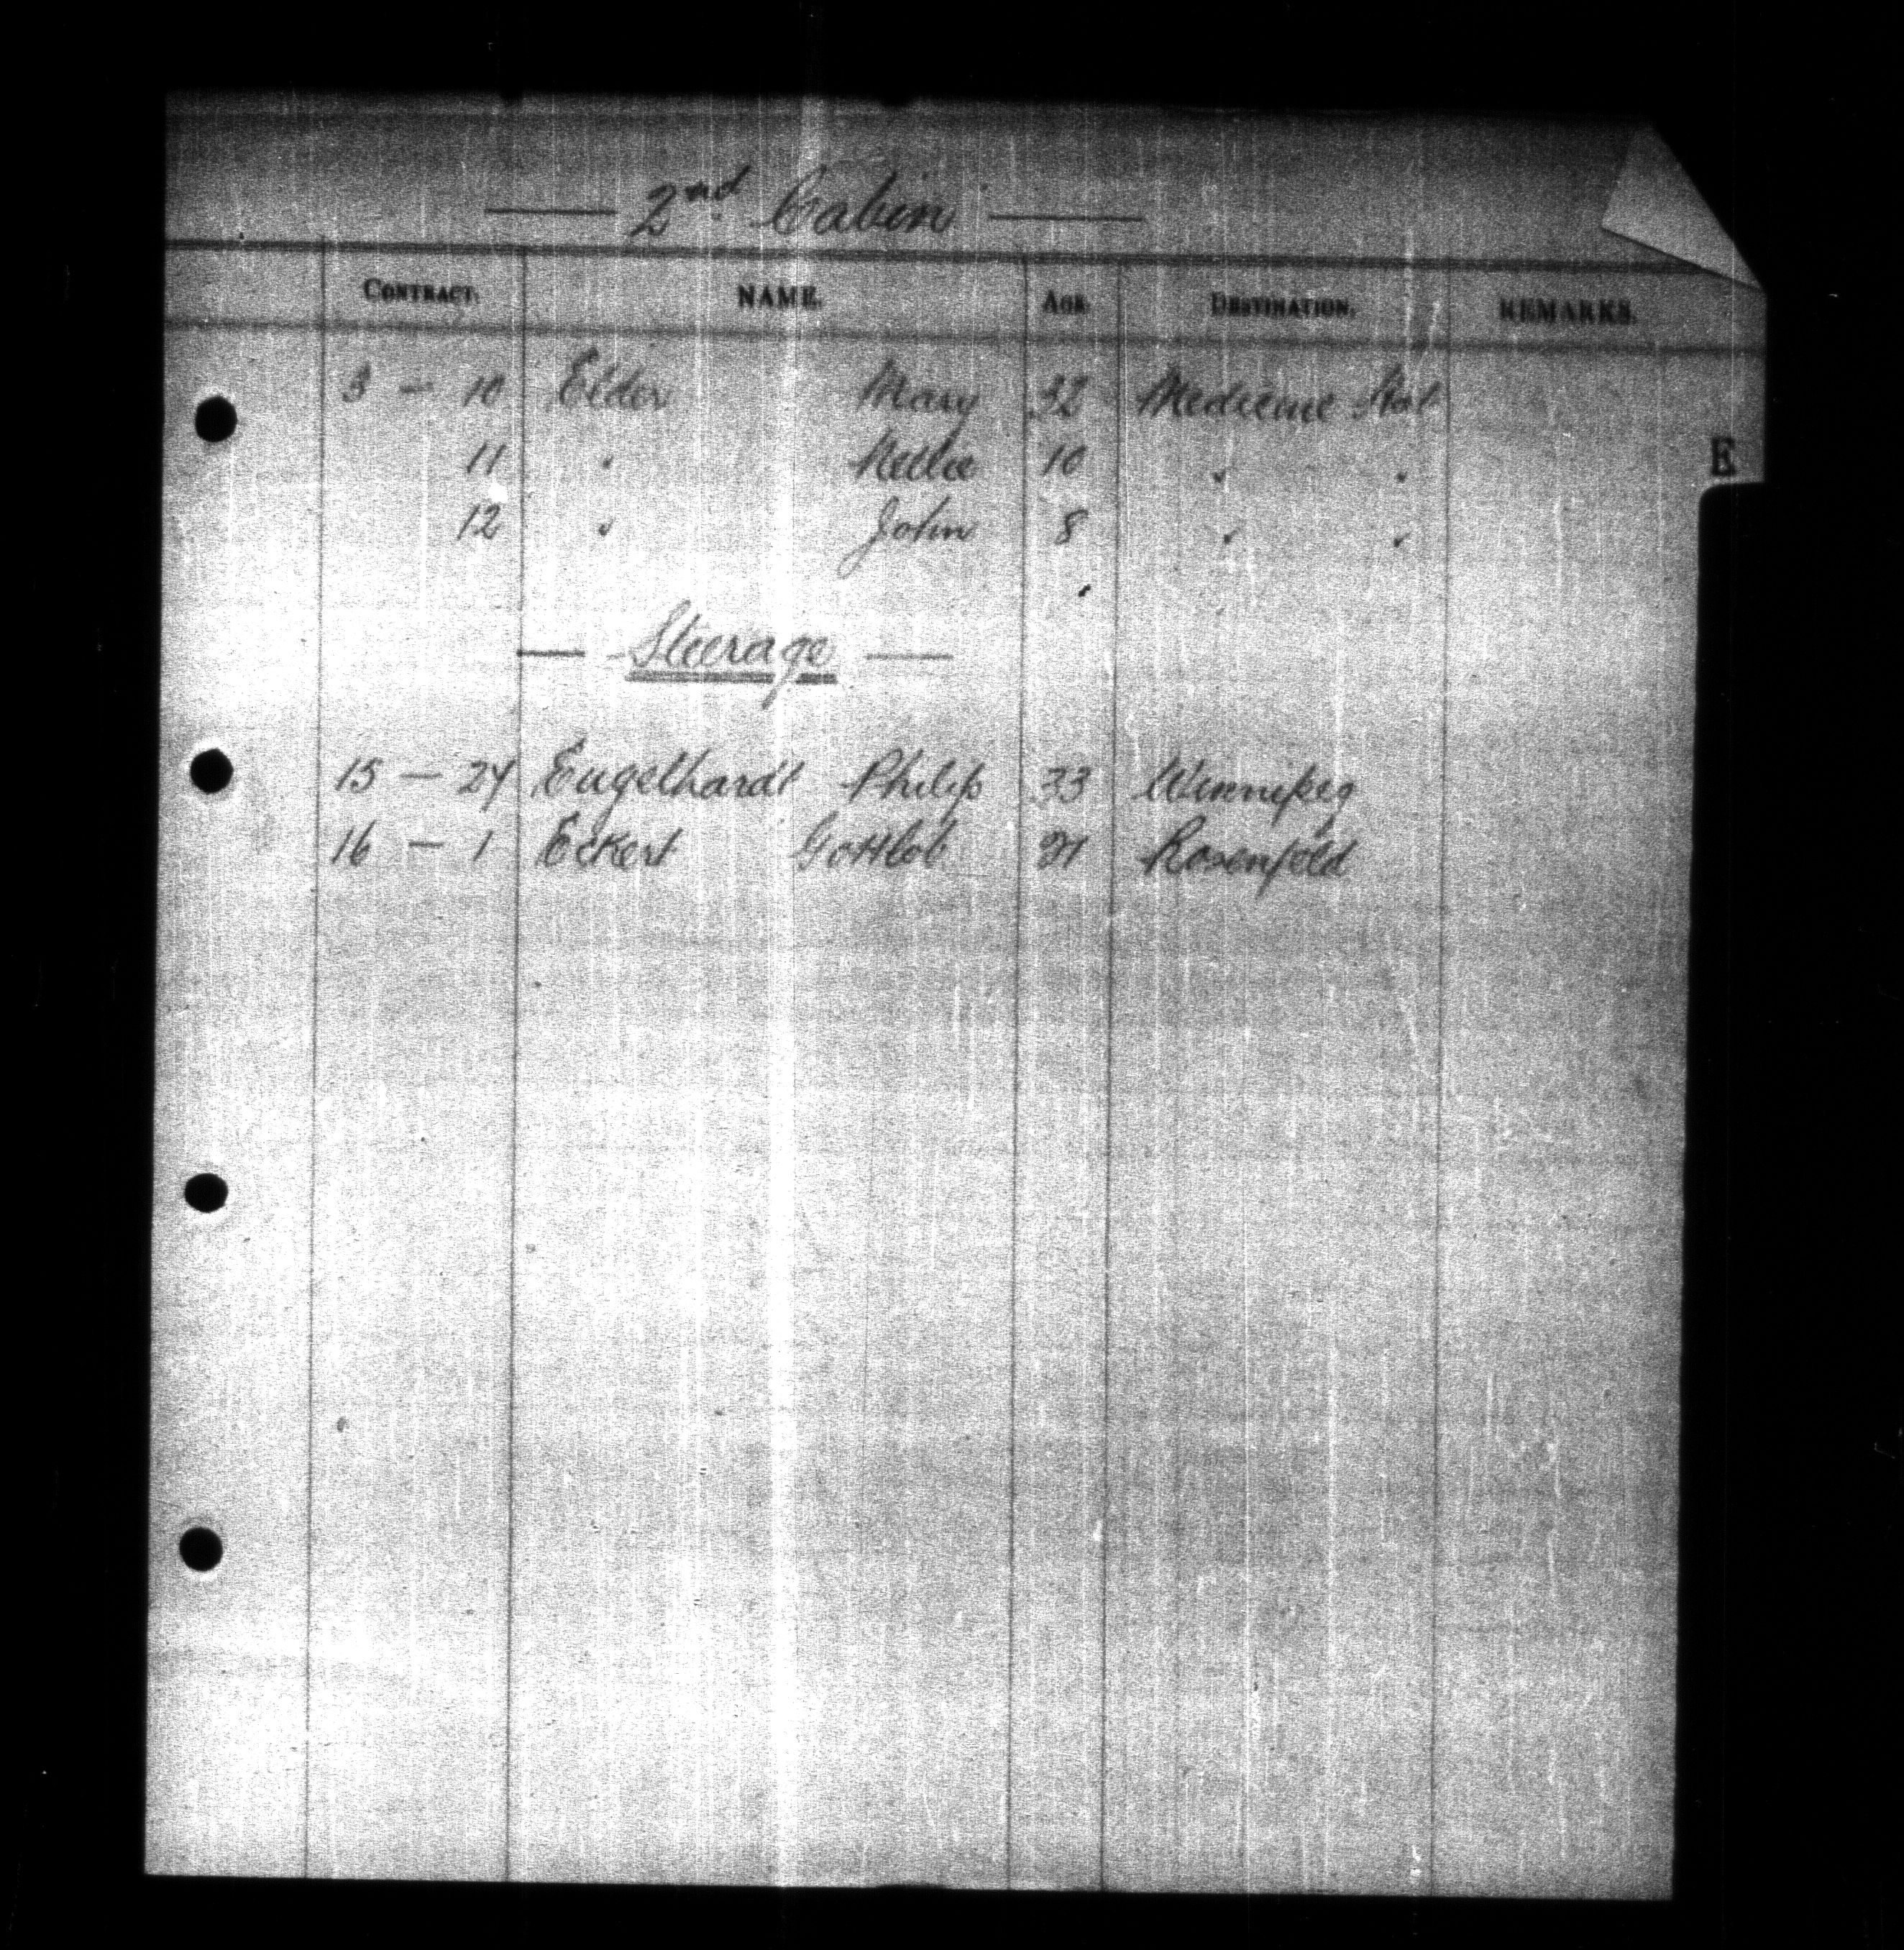 2nd Cabin
CONTRACT. NAME. AGE. DESTINATION. REMARKS.
3 - 10 Elder Mary 32 Medicine Hat
E
11 " Nellie 10 " "
12 " John 8 " "
Steerage
15 - 24 Engelhardt Philip 33 Winnipeg
16 - 1 Eckert Gottlob 21 Rosenfeld